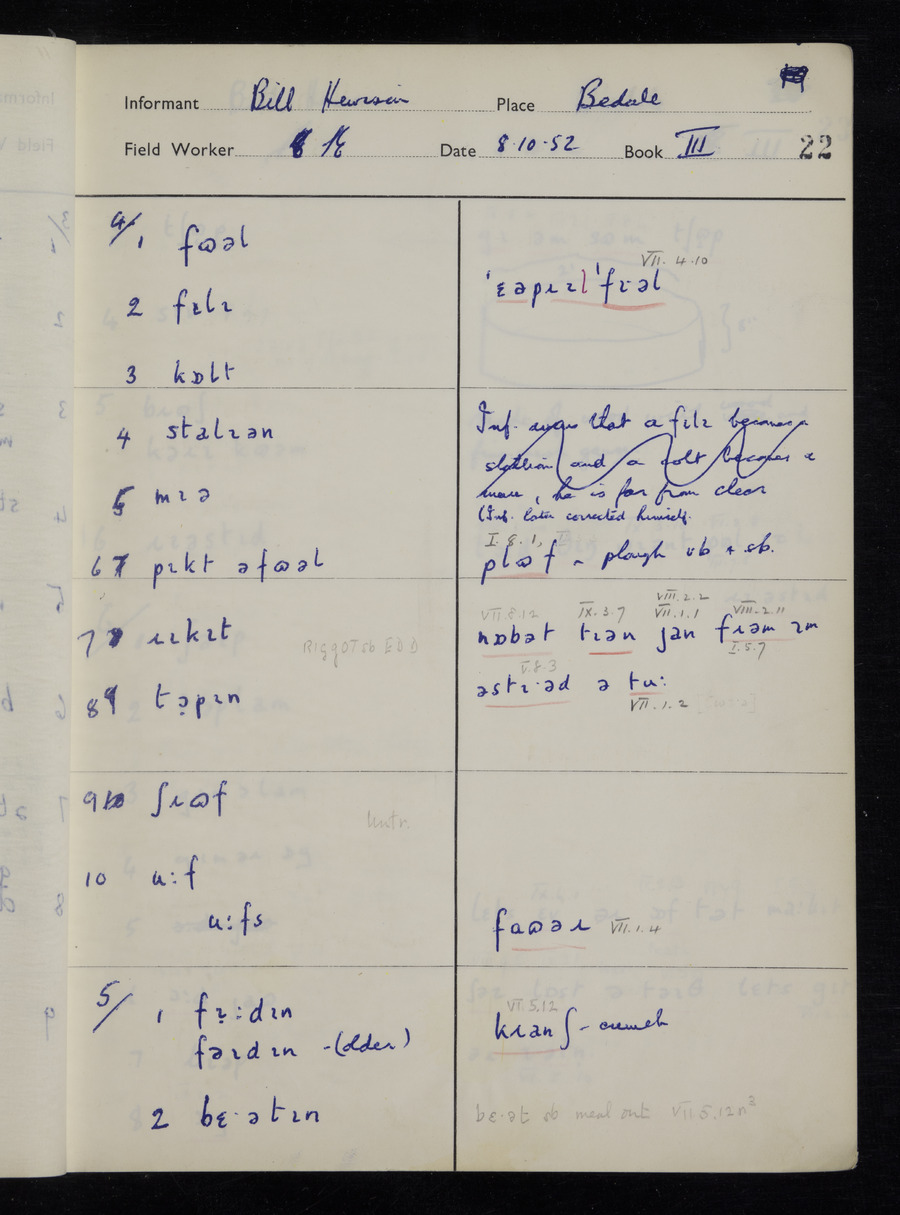 Informant Bill Hewison Place Bedale
Field Worker Date 8·10·52 Book III 22
4/ 1 fɷəl
2 fɪlɪ
3 kɒlt
4 stalɪən
5 mɪə
6 pɪkt əfɷəl
7 ɹɪkɪt
RIGGOT sb EDD
8 tə̣pɪn
9 ʃɹɷf
10 u:f
u:fs
5/ 1 fɪ̣:dɪn
fəɪdɪn -(older)
2 bɛ·ətɪn
VII. 4.10
ˈɛəpɹɪlˈfɪ·əl
Inf. says that a fɪlɪ becomes a
stallion and a colt becomes a
mare, he is far from clear
(Inf. later corrected himself.
I.8.1,
plɷf ~ plough vb + sb.
VII.8.12 IX.3.7 VIII.2.2 VII.1.1 VIII.2.11
nɒbət tɪən jan fɹəm ɪm
I.5.7
V.8.3
əstɪ·əd ə tu:
VII.1.2
faɷəɹ VII.1.4
VI.5.12
kɹanʃ - crunch
bɛ·ət sb meal out VII.5.12n³